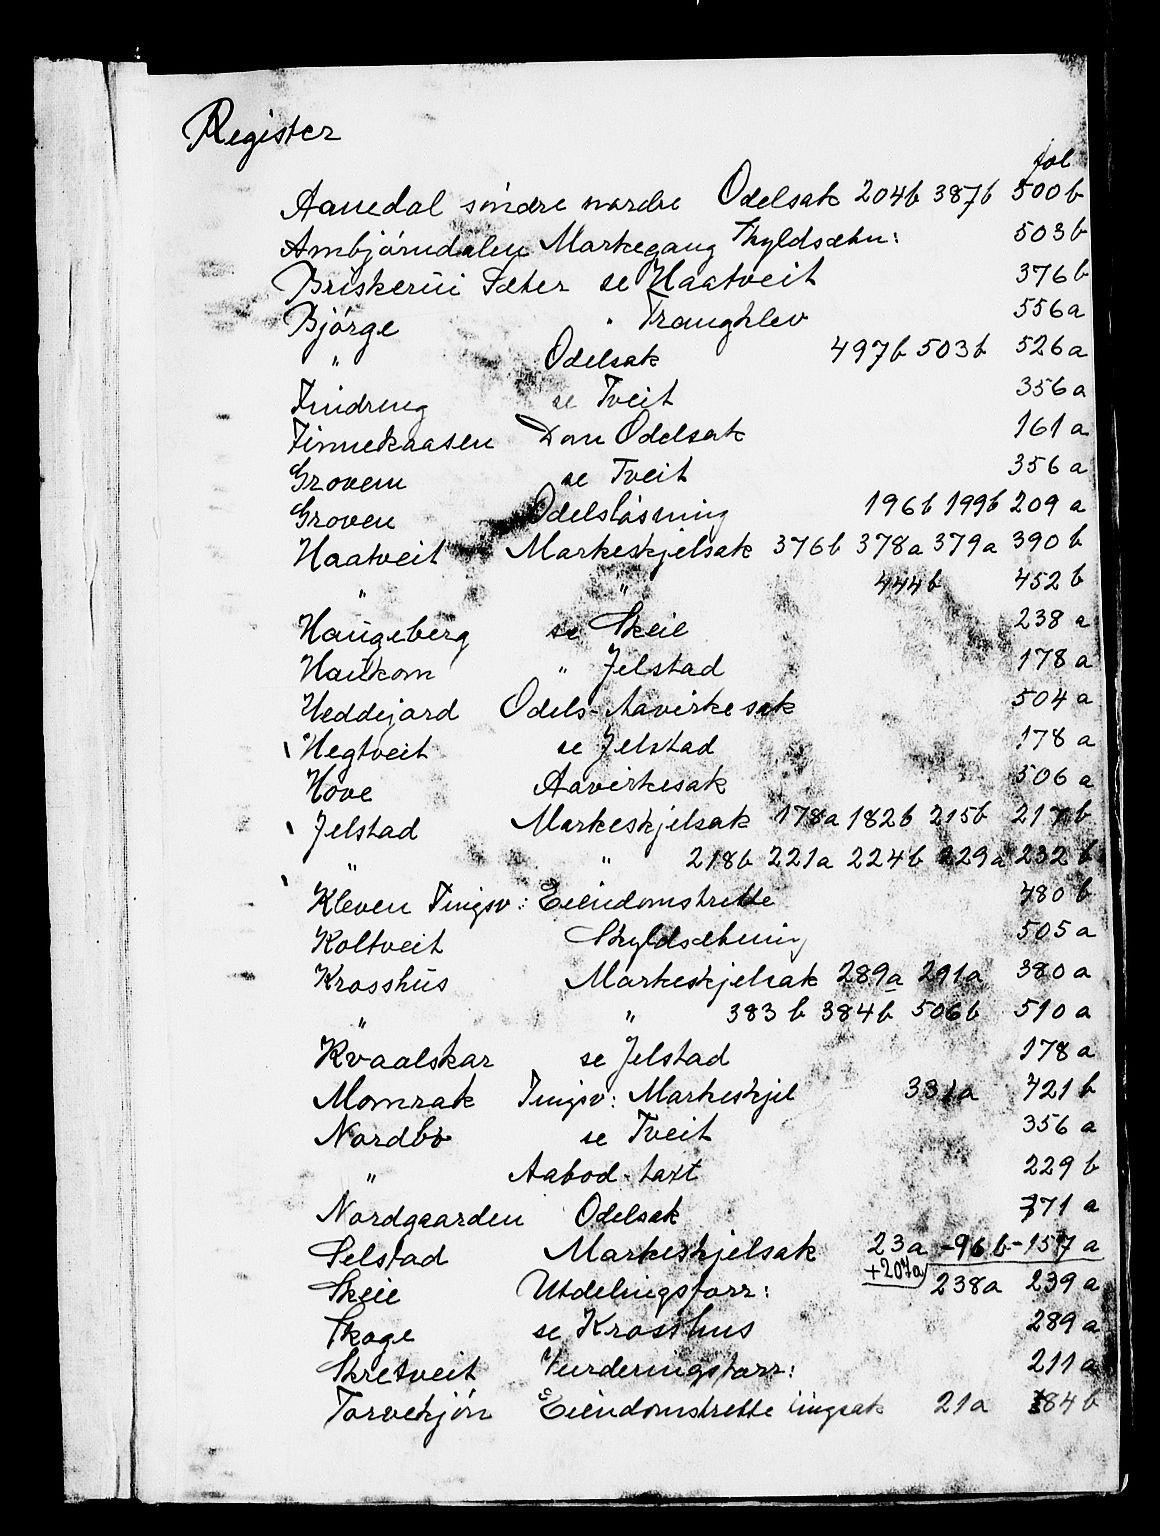 Register
fol
Aanedal söndre nordre Odelsak 204b 387b 500b
Ambjörndalen Markegang Skyldsætn: 503b
Briskerüi Sæter se Haatveit 376b
Bjórge " Traughlev 556a
" Odelsak 497b 503b 526a
Findreng se Tveit 356a
Finnekaasen Dom Odelsak 161a
Grovem se Tveit 356a
Groven Odelslösning 196b 199b 209a
Haatveit Markeskjelsak 376b 378a 379a 390b
" " 444b 452b
Haugeberg se Skeie 238a
Haükom " Jelstad 178a
Heddejord Odels-Aavirkesak 504a
Hegtveit se Jelstad 178a
Hove Aavirkesak 506a
Jelstad Markeskjelsak 178a 182b 215b 217b
" " 218b 221a 224b 229a 232b
Kleven Tingsv: Eiendomstrette 480b
Koltveit Skyldsætning 505a
Krosshüs Markeskjelsak 289a 291a 380a
" " 383b 384b 506b 510a
Kvaalskar se Jelstad 178a
Momrak Tingsv: Markeskjel 331a 421b
Nordbö se Tveit 356a
" Aabod-taxt 229b
Nordgaarden Odelsak 371a
Selstad Markeskjelsak 23a -96b-157a
+207a
Skeie Utdelingsforr: 238a 239a
Skoge se Krosshus 289a
Skretveit Vurderingsforr: 211a
Torvekjön Eiendomstrette tingsak 21a 184b